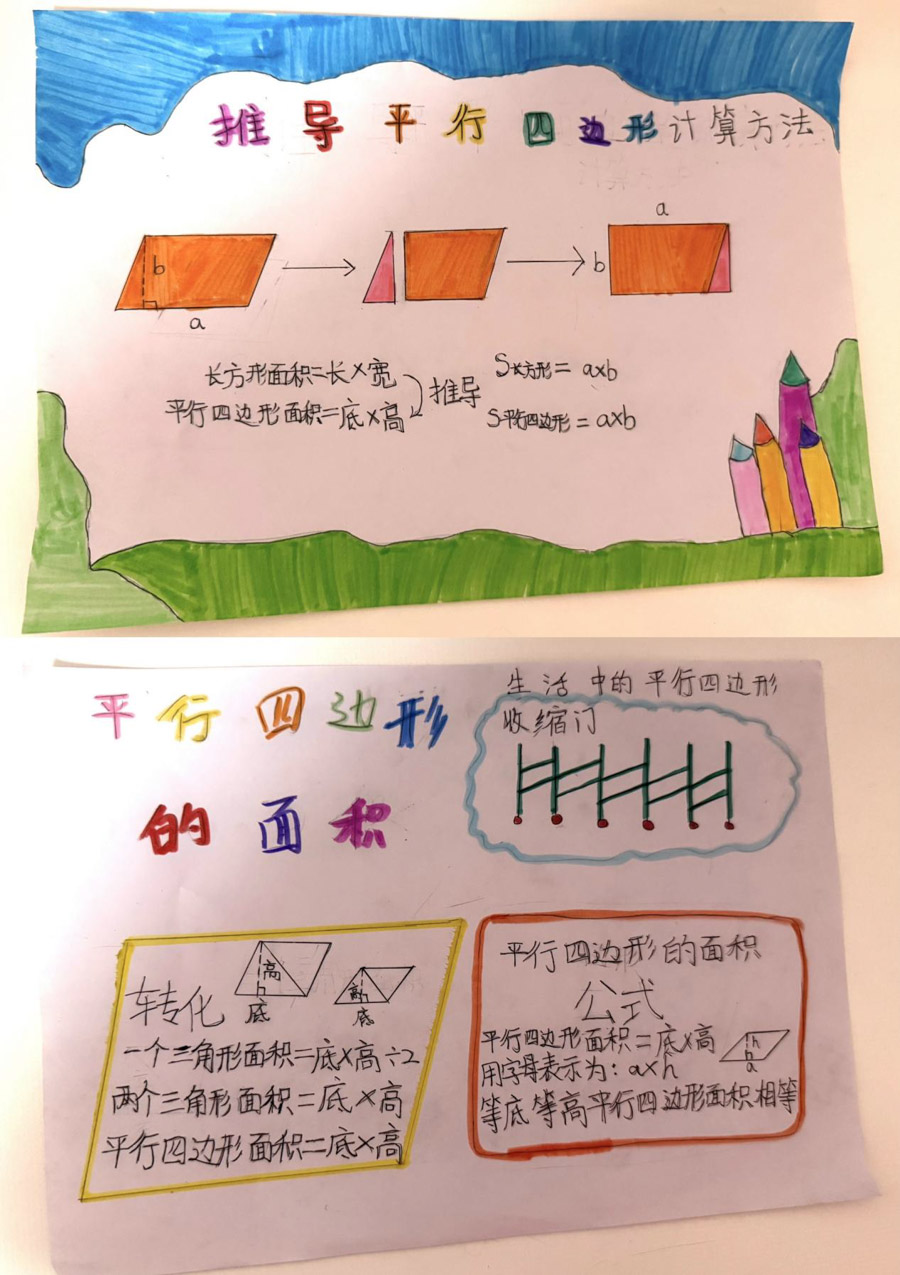 推导平行四边形计算方法
b
a
a
b
长方形面积=长×宽
平行四边形面积=底×高
推导
S长方形=a×b
S平行四边形=a×b
平行四边形
的面积
生活中的平行四边形
收缩门
转化
高
底
高
底
一个三角形面积=底×高÷2
两个三角形面积=底×高
平行四边形面积=底×高
平行四边形的面积
公式
平行四边形面积=底×高
用字母表示为:a×h
h
a
等底等高平行四边形面积相等